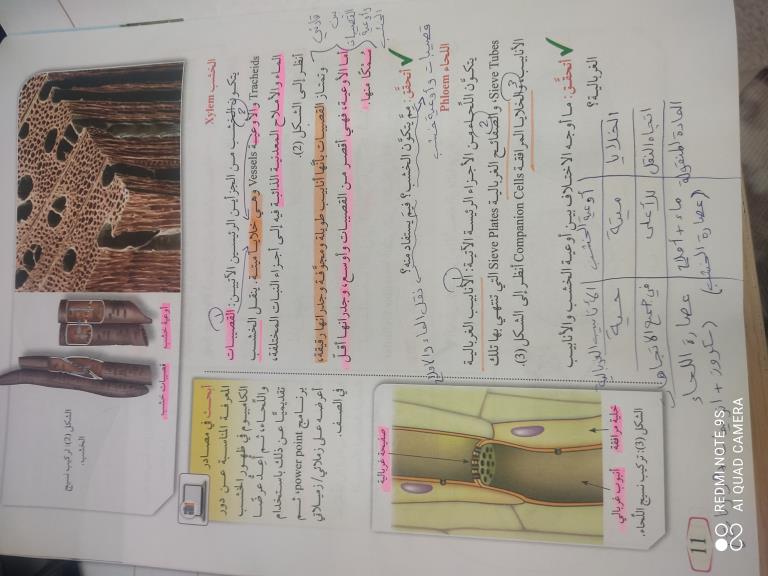 الخشب Xylem
يتكون الخشب من الجزأين الرئيسين الآتيين: القصيبات
Tracheids والأوعية Vessels وهي خلايا ميتة. ينقل الخشب
الماء والأملاح المعدنية الذائبة فيه إلى أجزاء النبات المختلفة،
وتمتاز القصيبات بأنها أنابيب طويلة ومجوفة وجدرانها رقيقة،
أما الأوعية، فهي أقصر من القصيبات وأوسع، وجدرانها أقل
سمكًا منها. أنظر إلى الشكل (2).
✓ أتحقق: مم يتكون الخشب؟ فيم يستفاد منه؟
قصيبات وأوعية خشب
نقل الماء والأملاح
اللحاء Phloem
يتكون اللحاء من الأجزاء الرئيسة الآتية: الأنابيب الغربالية
Sieve Tubes والصفائح الغربالية Sieve Plates التي تنتهي بها تلك
الأنابيب، والخلايا المرافقة Companion Cells أنظر إلى الشكل (3).
✓ أتحقق: ما أوجه الاختلاف بين أوعية الخشب والأنابيب
الغربالية؟
أوعية الخشب الأنابيب الغربالية
الخلايا ميتة حية
اتجاه النقل للأعلى في جميع الاتجاهات
المادة المنقولة ماء + أملاح عصارة اللحاء
(عصارة الخشب)
أوعية خشب
قصيبات خشب
الشكل (2): تركيب نسيج
الخشب.
أبحث في مصادر
المعرفة المناسبة عن دور
الكامبيوم في ظهور الخشب
واللحاء، ثم أعد عرضًا
تقديميًا عن ذلك باستخدام
برنامج power point، ثم
أعرضه على زملائي/ زميلاتي
في الصف.
صفيحة غربالية
خلية مرافقة
أنبوب غربالي
الشكل (3): تركيب نسيج اللحاء.
11
REDMI NOTE 9S
AI QUAD CAMERA